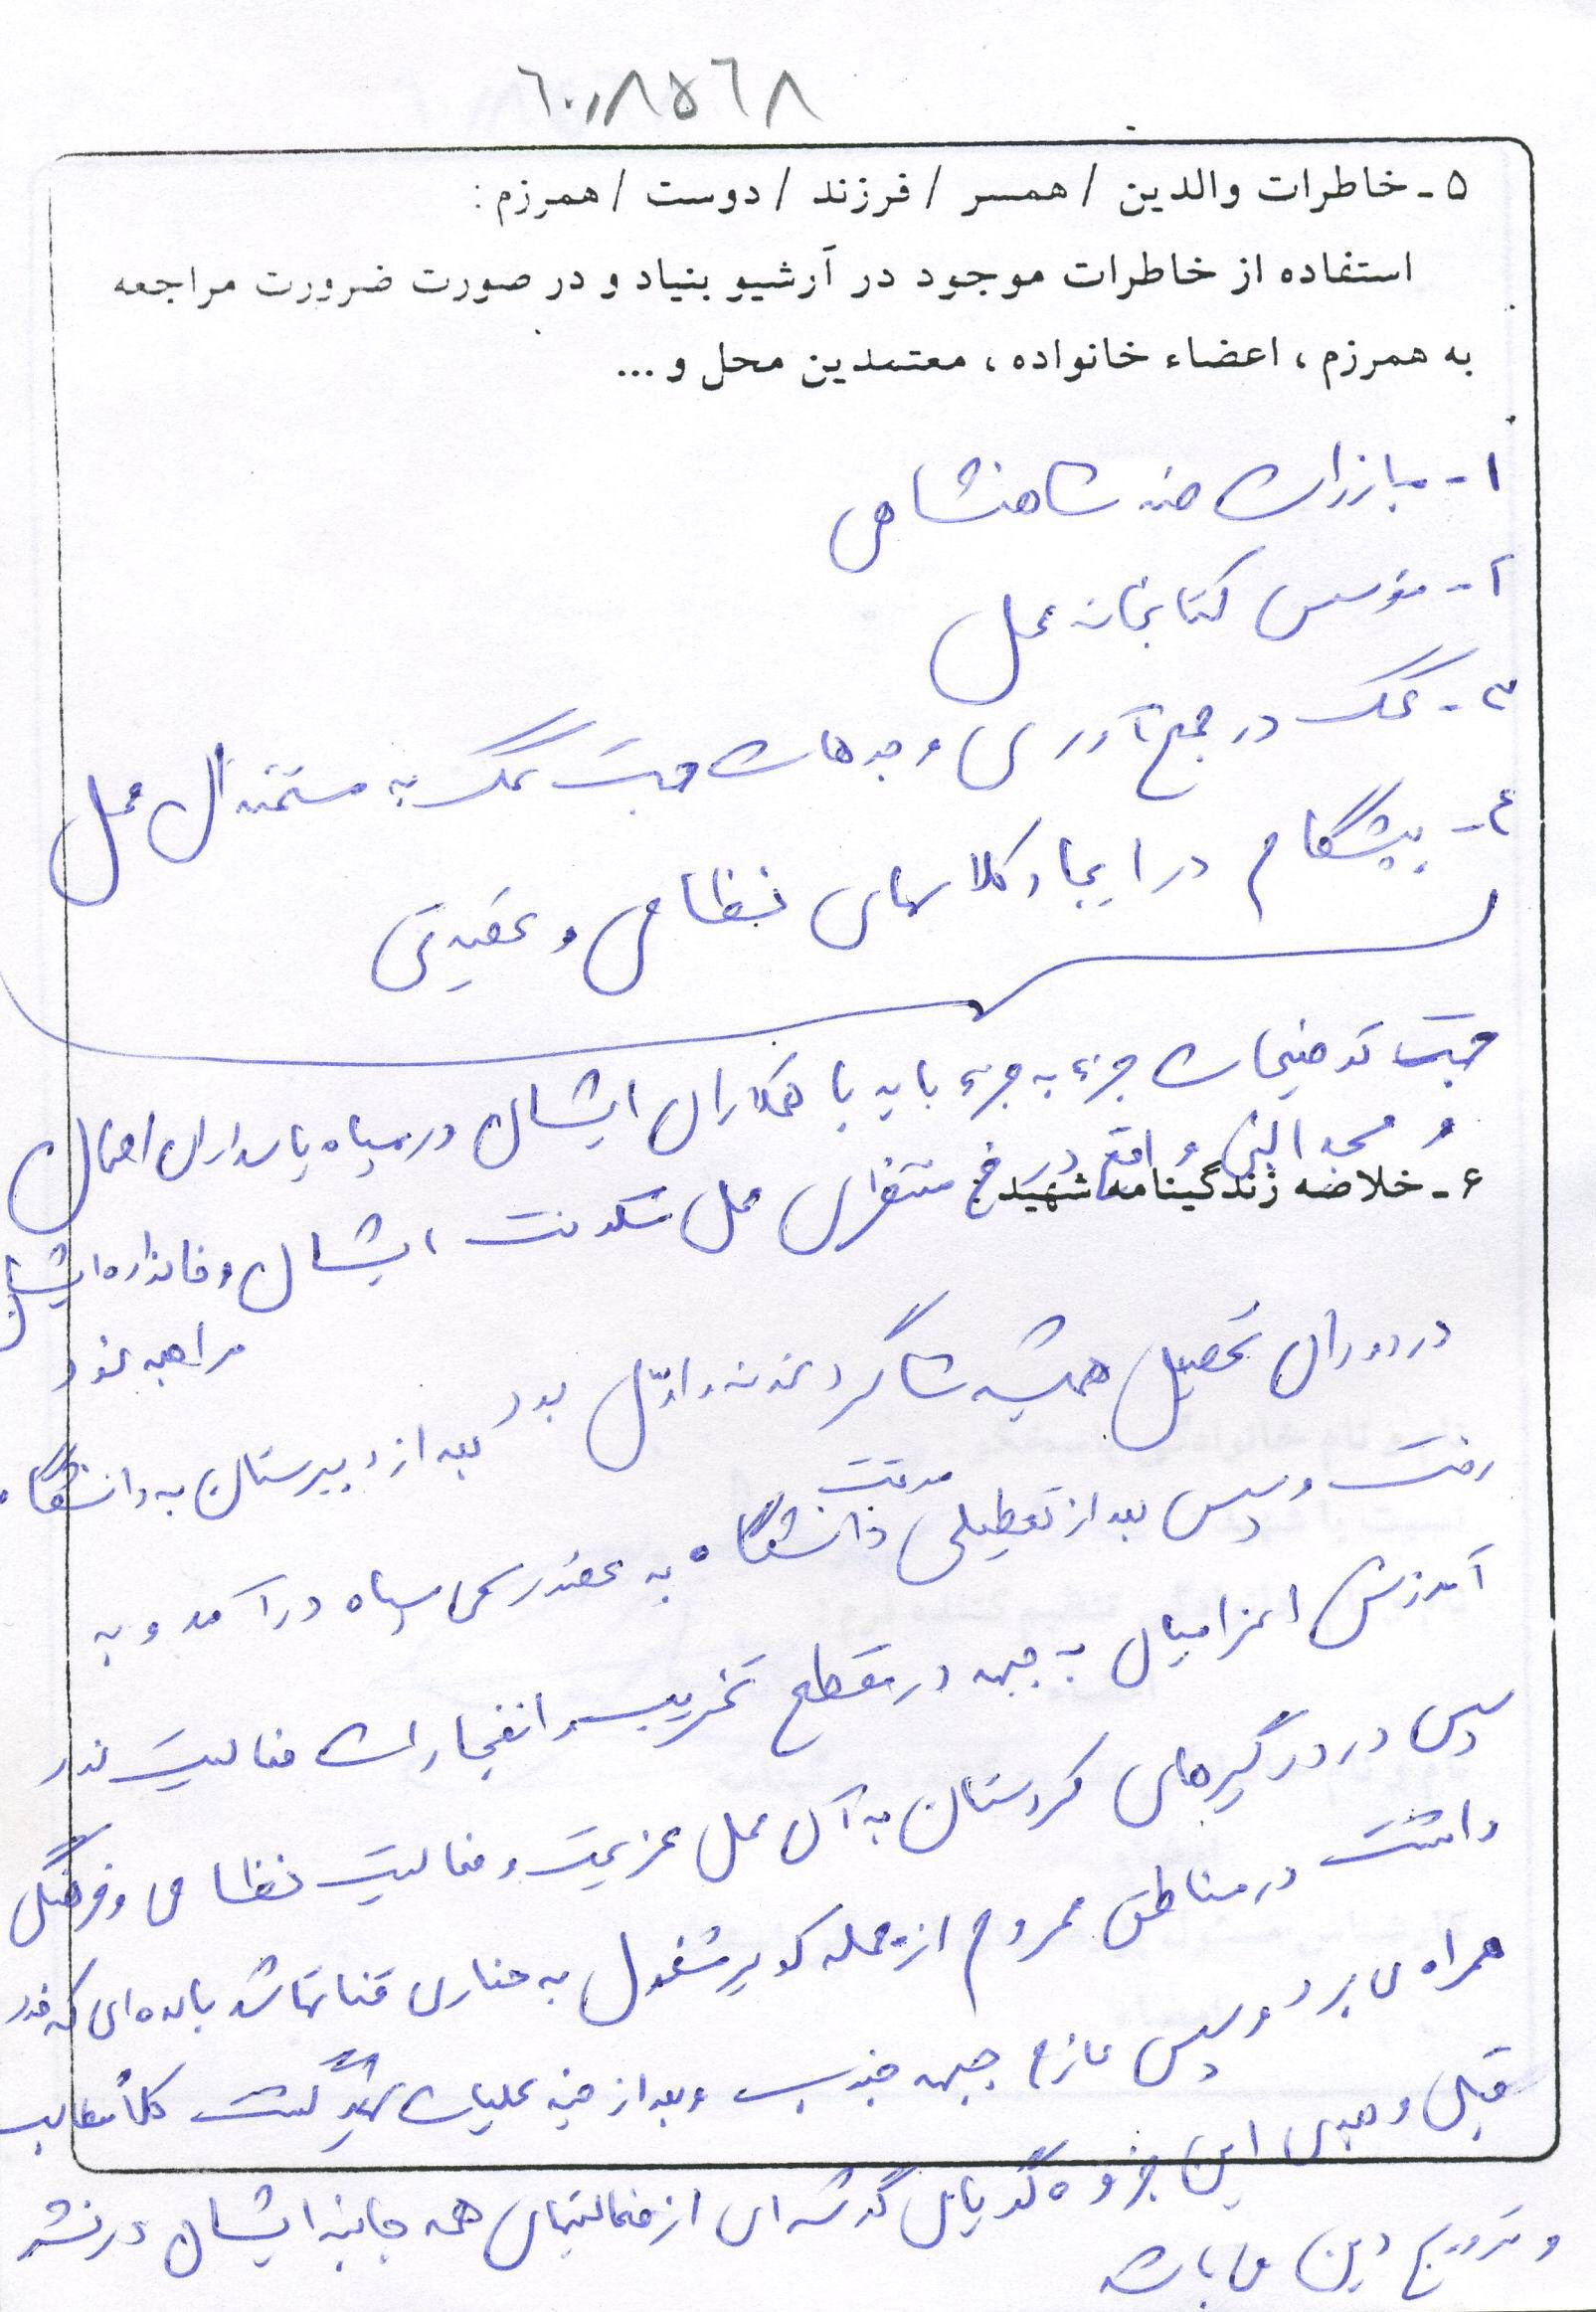 ٦٠٫٨٥٦٨
۵ ـ خاطرات والدین / همسر / فرزند / دوست / همرزم :
استفاده از خاطرات موجود در آرشیو بنیاد و در صورت ضرورت مراجعه
به همرزم ، اعضاء خانواده ، معتمدین محل و ...
۱ - مبارزات ضد شاهنشاهی
۲ - مؤسس کتابخانه محل
۳ - کمک در جمع آوری وجوهات جهت کمک به مستمندان محل
۴ - پیشگام در ایجاد کلاسهای نظامی و عقیدتی
جهت توضیحات جزء به جزء باید با همکاران ایشان در سپاه پاسداران
و واقع در محل سکونت ایشان و خانواده ایشان
مراجعه نمود
۶ ـ خلاصه زندگینامه شهید :
در دوران تحصیل همیشه شاگرد نمونه و اول بود بعد از دبیرستان به دانشگاه
رفت و سپس بعد از تعطیلی موقت دانشگاه به عضو رسمی سپاه در آمد و به
آموزش اعزامیان به جبهه در مقطع تخریب و انفجارات فعالیت نمود
سپس در درگیرهای کردستان به آن محل عزیمت و فعالیت نظامی و فرهنگی
داشت در مناطق محروم از جمله کویر مشغول به حفاری قناتها شد با عده ای که خود
همراه می برد و سپس عازم جبهه جنوب و بعد از چند عملیات شهید گشت کلاً مطالب
قبلی و بعدی این جزوه گویای گوشه ای از فعالیتهای همه جانبه ایشان در نشر
و ترویج دین می باشد